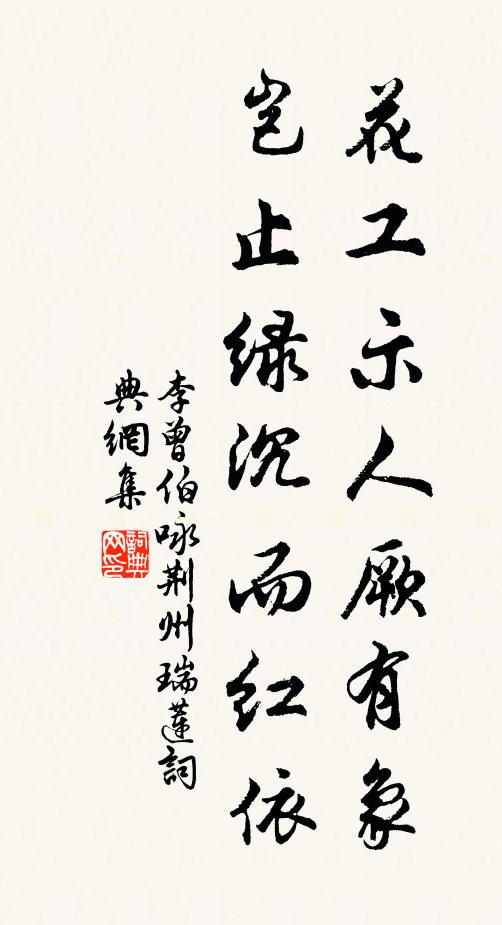 花工示人厥有象
岂止绿沉而红依
李曾伯咏荆州瑞莲詞
典網集
詞典网印